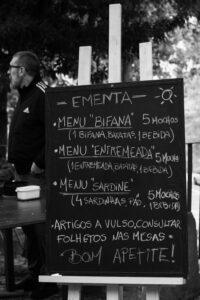 — EMENTA —
• MENU "BIFANA" 5 MOCHOS
(1 BIFANA, BATATAS, 1 BEBIDA)
• MENU "ENTREMEADA" 5 MOCHOS
(1 ENTREMEADA, BATATAS, 1 BEBIDA)
• MENU "SARDINE" 5 MOCHOS
(4 SARDINHAS, PÃO, 1 BEBIDA)
• ARTIGOS A VULSO, CONSULTAR
FOLHETOS NAS MESAS.
BOM APETITE!